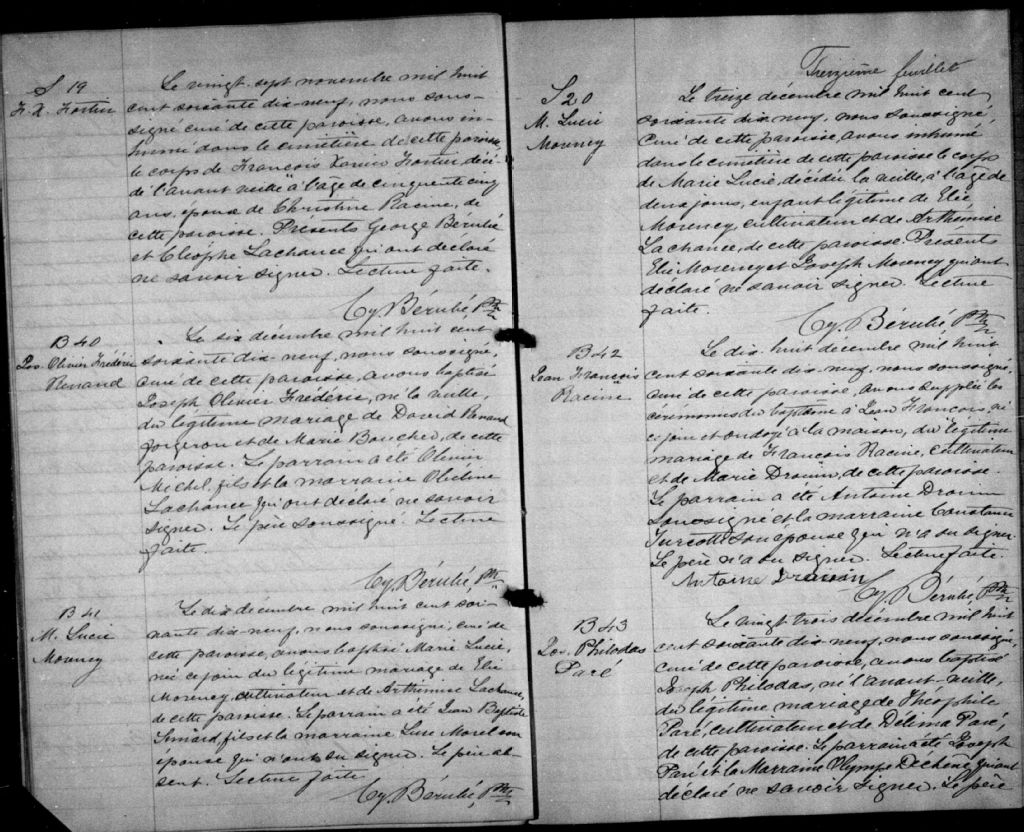 S 19
F. X. Fortier
Le vingt sept novembre mil huit
cent soixante dix-neuf, nous sous-
signé curé de cette paroisse, avons in-
humé dans le cimetière de cette paroisse
le corps de François Xavier Fortier décé-
dé l'avant veille à l'âge de cinquante cinq
ans, époux de Christine Racine, de
cette paroisse. Présents George Bérubé
et Cléophe Lachance qui ont déclaré
ne savoir signer. Lecture faite.
Cy. Bérubé, Ptre
B 40
Jos. Olivier Frédéric
Renaud
Le six décembre mil huit cent
soixante dix-neuf, nous soussigné,
curé de cette paroisse, avons baptisé
Joseph Olivier Frédéric, né la veille,
du légitime mariage de David Renaud
forgeron et de Marie Boucher, de cette
paroisse. Le parrain a été Olivier
Michel, fils et la marraine
Lachance qui ont déclaré ne savoir
signer. Le père soussigné. Lecture
faite.
Cy. Bérubé, Ptre
B 41
M. Lucie
Morency
Le dix décembre mil huit cent soi-
xante dix-neuf, nous soussigné, curé de
cette paroisse, avons baptisé Marie Lucie,
née ce jour du légitime mariage de Elie
Morency, cultivateur et de Arthémise Lachance,
de cette paroisse. Le parrain a été Jean Baptiste
Simard, fils et la marraine Luce Morel son
épouse qui n'ont su signer. Le père ab-
sent. Lecture faite.
Cy. Bérubé, Ptre
Treizième feuillet
S 20
M. Lucie
Morency
Le treize décembre mil huit cent
soixante dix neuf, nous soussigné,
Curé de cette paroisse, avons inhumé
dans le cimetière de cette paroisse le corps
de Marie Lucie, décédée la veille, à l'âge de
deux jours, enfant légitime de Elie
Morency, cultivateur et de Arthémise
Lachance, de cette paroisse. Présents
Elie Morency et Joseph Morency qui ont
déclaré ne savoir signer. Lecture
faite.
Cy. Bérubé, Ptre
B 42
Jean François
Racine
Le dix huit décembre mil huit
cent soixante dix-neuf, nous soussigné,
curé de cette paroisse, avons suppléé les
cérémonies du baptême à Jean François, né
ce jour et ondoyé à la maison, du légitime
mariage de François Racine, cultivateur
et de Marie Drouin, de cette paroisse.
Le parrain a été Antoine Drouin
soussigné et la marraine Constance
Turcotte son épouse qui n'a su signer.
Le père n'a su signer. Lecture faite.
Antoine Drouin
Cy. Bérubé, Ptre
B 43
Jos. Philodas
Paré
Le vingt trois décembre mil huit
cent soixante dix-neuf, nous soussigné,
curé de cette paroisse, avons baptisé
Joseph Philodas, né l'avant-veille,
du légitime mariage de Théophile
Paré, cultivateur et de Délima Paré,
de cette paroisse. Le parrain a été Joseph
Paré et la Marraine Olympe Dechêne qui ont
déclaré ne savoir signer. Le père